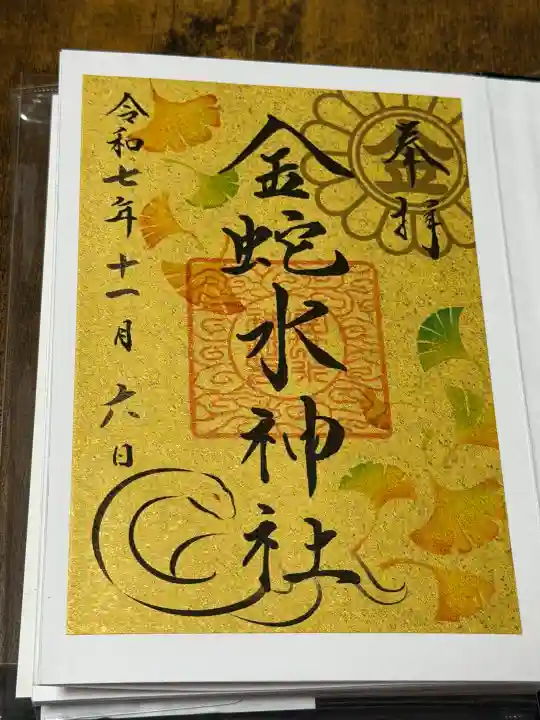 奉拝
金
金蛇水神社
令和七年十一月六日